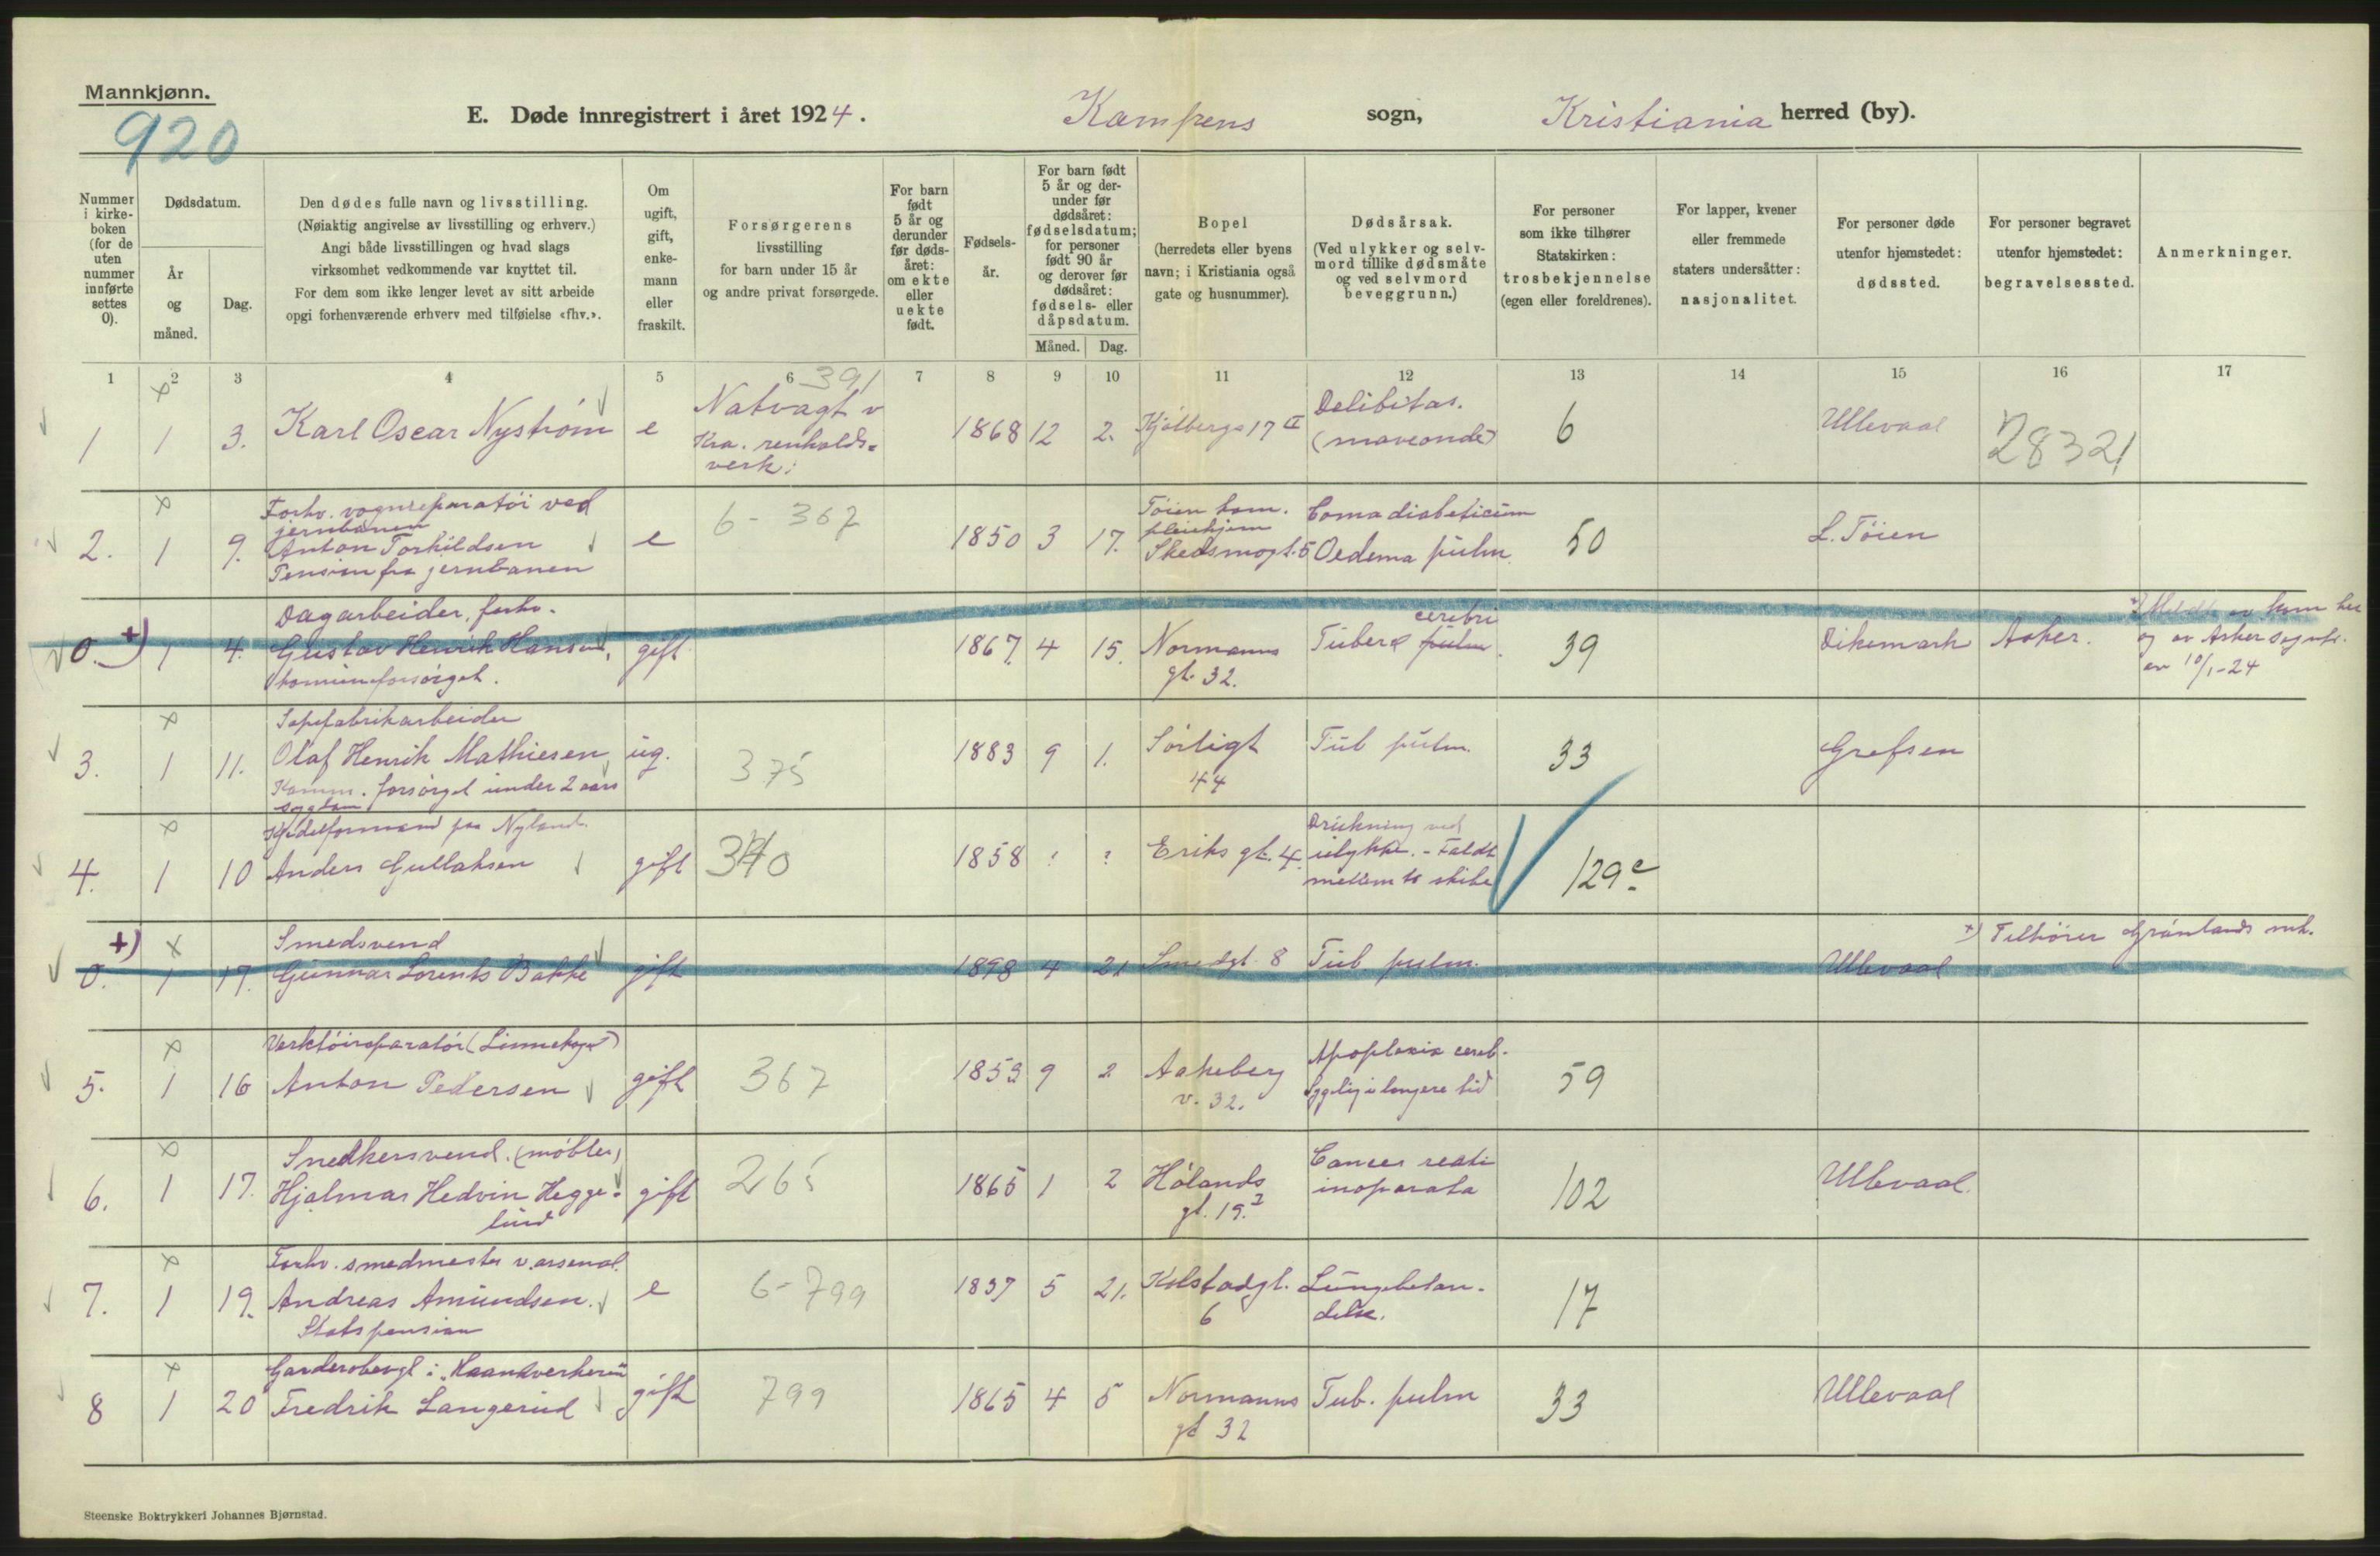 Mannkjønn.
920
E. Døde innregistrert i året 1924. Kampens sogn, Kristiania herred (by).
Nummer i kirke-boken (for de uten nummer innførte settes 0).
Dødsdatum.
År og måned.
Dag.
Den dødes fulle navn og livsstilling.
(Nøiaktig angivelse av livsstilling og erhverv.)
Angi både livsstillingen og hvad slags
virksomhet vedkommende var knyttet til.
For dem som ikke lenger levet av sitt arbeide
opgi forhenværende erhverv med tilføielse «fhv.».
Om ugift, gift, enke-mann eller fraskilt.
Forsørgerens livsstilling
for barn under 15 år
og andre privat forsørgede.
For barn født 5 år og derunder før døds-året: om ekte eller uekte født.
Fødsels-år.
For barn født 5 år og der-under før dødsåret: fødselsdatum; for personer født 90 år og derover før dødsåret: fødsels- eller dåpsdatum.
Måned. Dag.
Bopel
(herredets eller byens
navn; i Kristiania også
gate og husnummer).
Dødsårsak.
(Ved ulykker og selv-
mord tillike dødsmåte
og ved selvmord
beveggrunn.)
For personer
som ikke tilhører
Statskirken:
trosbekjennelse
(egen eller foreldrenes).
For lapper, kvener
eller fremmede
staters undersåtter:
nasjonalitet.
For personer døde
utenfor hjemstedet:
dødssted.
For personer begravet
utenfor hjemstedet:
begravelsessted.
Anmerkninger.
1 2 3 4 5 6 7 8 9 10 11 12 13 14 15 16 17
391
1 1 3. Karl Oscar Nystrøm e Natvagt v Kra. renholds=verk: 1868 12 2. Kjølbergg 17 II Delibitas. (maveonde) 6 Ullevaal 28321
Forhv. vognreparatør ved
jernbanen
2. 1 9. Anton Torkildsen e 6 - 367 1850 3 17. Tøien kom. pleiehjem Skedsmogt. 5 Coma diabeticum Oedema pulm. 50 L. Tøien
Pension fra jernbanen
Dagarbeider, forhv.
0. +) 1 4. Gustav Henrik Hansen, gift 1867. 4 15. Normanns gt. 32. Tuberc pulm. cerebri 39 Dikemark Asker. og av Asker sogn
av 10/1-24
komuneforsørget.
Sæpefabrikarbeider
3. 1 11. Olaf Henrik Mathiesen ug. 375 1883 9 1. Sørligt 44 Tub pulm. 33 Grefsen
Komm. forsørget under 2 aars
sygdom
Kjedelformand paa Nyland.
4. 1 10 Anders Gullaksen gift 340 1858 ? ? Eriks gt. 4. Drukning ved ulykke. - Faldt mellem to skibe 129 c
+) Smedsvend
0. 1 17. Gunnar Lorents Bakke gift 1898 4 21 Smedgt. 8 Tub pulm. Ullevaal +) Tilhører Grønlands mh.
Verktøireparatør
5. 1 16 Anton Pedersen gift 367 1853 9 2 Aakeberg v. 32. Apoplexia cereb. Sygelig i længere tid 59
Snedkersvend. (møbler)
6. 1 17. Hjalmar Hedvin Hegge=lund gift 265 1865 1 2 Hølands gt. 19. 2 Cancer recti inoperata 102 Ullevaal.
Forhv. smedmester v. arsenal.
7. 1 19. Andreas Amundsen. e 6 - 799 1837 5 21. Kolstadgt. 6 Lungebetæn-delse. 17
Statspension
Garderobevgt i "Haandverkeren"
8 1 20 Fredrik Langerud gift 799 1865 4 5 Normanns gt 32 Tub. pulm 33 Ullevaal
Steenske Boktrykkeri Johannes Bjørnstad.